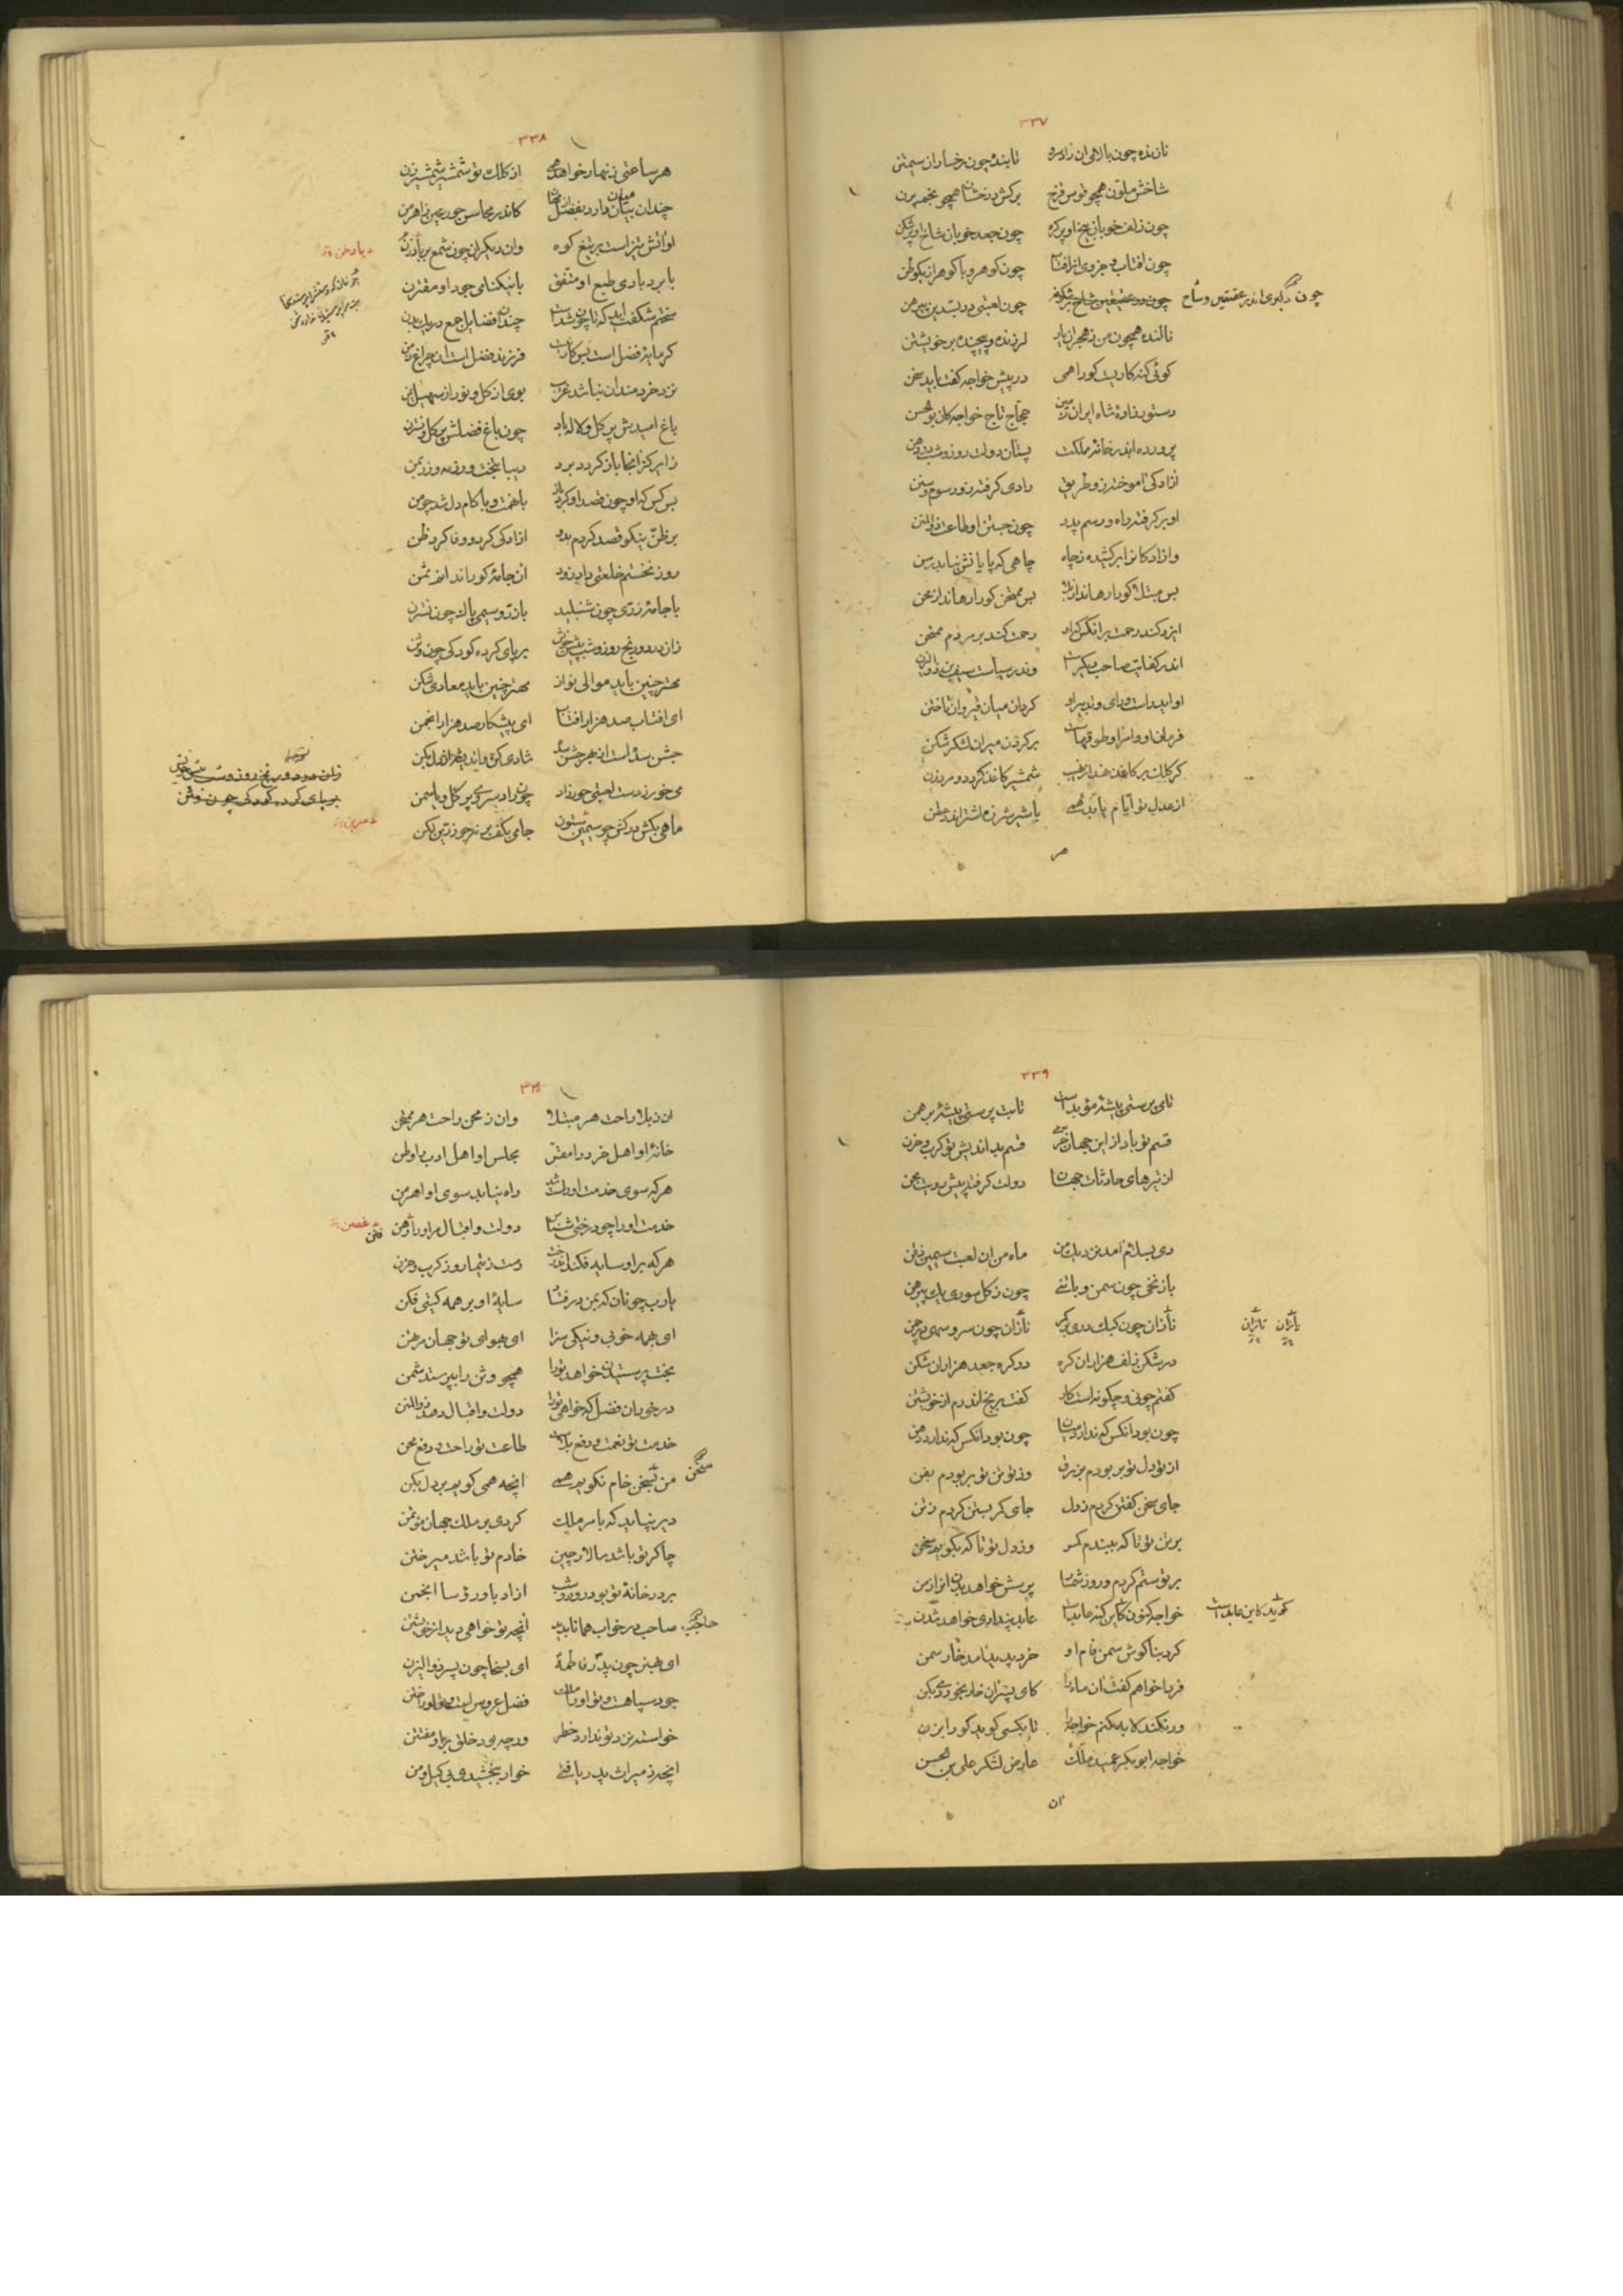 ۳۳۷
نازنده چون بالای ان زادسرو تابنده چون رخسار ان سیمتن
شاخش ملون همچو قوس قزح برکش درخشان همچو نجم پرن
چون زلف خوبان بیخ او پرکره چون جعد خوبان شاخ او پرشکن
چون افتاب و جزوی از افتاب چون کوهر و با کوهر از یکوطن
چون لعبتی در بسدین پیرهن
چون دلبری اندر عقیقین وشاح
نالنده همچون من ز هجران یار لرزنده و پیچنده بر خویشتن
کوئی کنه کاریست کو را همی در پیش خواجه کفت باید سخن
دستور زادهٔ شاه ایران زمین حجاج تاج خواجکان بوالحسن
پرورده اندر خانهٔ مملکت پستان دولت روز و شب در دهن
ازادکی اموخته زو طریق رادی کرفته زو رسوم و سنن
او بر کرفته راه و رسم پدر چون جستن او طاعت ذوالمنن
و ازادکانرا برکشیده ز چاه چاهی که پایانش نیابد رسن
بس مبتلا کو را رهاند از بلا بس ممتحن کو را رهاند از محن
ایزد کند رحمت بر انکس که او رحمت کند بر مردم ممتحن
اندر کفایت صاحب دیکرست وندر سیاست سیف بن ذوالیزن
او ایدر است و رای و تدبیر او کردان میان قیروان تا ختن
فرمان او و امر او طوقهاست بر کردن میران لشکر شکن
کر کلک بر کاغذ نهد از نهیب شمشیر کاغذ کردد و مرد زن
از عدل تو ایام پاید همی با شیر شرزه اشتر اندر عطن
هر
۳۳۸
هر ساعتی زنهار خواهد همی از کلک تو شمشیر شمشیرزن
کاندر محاسن حور عین ز اهرمن
او اتش تیز است بر تیغ کوه وان دیکران چون شمع بر بادزن
با بردباری طبع او متفق با نیکنامی جود او مقترن
سختم شکفت اید که تا چون شدست چندان فضایل جمع در یک بدن
کر مایهٔ فضل است بس کار نیست فرزند فضل است ان چراغ زمن
نزد خردمندان نباشد غریب بوی از کل و نور از سهیل یمن
باغ امیدش پر کل و لاله باد چون باغ فضلش پر کل و نسترن
زایر کز انجا باز کردد برد دیبا بتخت و رزمه و زر بمن
بس کس که او چون قصد او کرد باز با نعمت و با کام دل شد چو من
بر ظن نیکو قصد کردم بدو ازادکی کرد و وفا کرد ظن
روز نخستم خلعتی داد زود ان جامهٔ کو را نداند ثمن
با جامه زری چون شنبلید با زر و سیمی پاک چون نسترن
زان درد و رنج روز و شب پیش خویش بر پای کرده کودکی چون وثن
مهتر چنین باید موالی نواز مهتر چنین باید معادی شکن
ای افتاب صد هزار افتاب ای پیشکار صد هزار انجمن
می خور ز دست لعبتی حورزاد چون زاد سروی پر کل و یاسمن
ماهی بکش در کش چو سیمین ستون جامی بکف بر نه چو زرین لکن
زان درد و رنج روز و شب پیش خویش
بر پای کرده کودکی چون وثن
۳۳۹
تا می پرستی پیشهٔ موبدست تا بت پرستی پیشهٔ برهمن
قسم تو باد از این جهان خرمی قسم بداندیش تو کرب و حزن
از تیرهای حادثات جهان دولت کرفته پیش رویت مجن
دی بسلام امد نزدیک من ماه من ان لعبت سیمین ذقن
با زنخی چون سمن و با تنی چون ز کل سوری یک پیرهن
تازان چون کبک دری بر کمر نازان چون سرو سهی در چمن
در شکن زلف هزاران کره در کره جعد هزاران شکن
کفتم چونی و چکونه است کار کفت برنج اندرم از خویشتن
چون بود انکس که ندارد میان چون بود انکس که ندارد دهن
از تو دل تو بربودم بزرق وز تو تن تو بربودم بفن
جای سخن کفتن کردم ز دل جای کمر بستن کردم ز تن
بر تن تو تا که ببندم کمر وز دل تو تا که بکویم سخن
بر تو ستم کردم و روز شمار پرسش خواهد بدن انرا ز من
کرد بناکوش سمن فام او خرد پدید نامد خار سمن
فردا خواهم کفت ان ماه را کای پسر ان خار بخور وی بکن
ور نکند لابد بکنم خواجه را تا بکسی کوید کو را بزن
خواجه ابوبکر عمید ملک عارض لشکر علی بن الحسن
ان
۳۴۰
ان ز بلا راحت هر مبتلا وان ز محن راحت هر ممتحن
خانهٔ او اهل خرد را مقر مجلس او اهل ادب را وطن
هر که سوی خدمت او راست شد راه نیابد سوی او اهرمن
خدمت او را چو درختی شناس دولت و اقبال مر او را فنن
هر که بر او سایه فکند ان درخت رست ز تیمار و ز کرب و حزن
یارب چونان که بمن بر فشاند سایهٔ او بر همه کیتی فکن
ای همه خوبی و نیکی سزا ای بهوای تو جهان مرتهن
بخت پرستیدن خواهد ترا همچو وثن را بپرستد شمن
در خور ان فضل که خواهی ترا دولت و اقبال دهد ذوالمنن
خدمت تو نعمت و دفع بلاست طاعت تو راحت و رفع محن
من سخن خام نکویم همی انچه همی کویم بر دل بکن
دیر نیاید که بامر ملک کردی بر ملک جهان موتمن
چاکر تو باشد سالار چین خادم تو باشد میر ختن
صاحب در خواب همانا ندید انچه تو خواهی دید از خویشتن
ای بهنر چون پدر فاطمه ای بسخا چون پسر ذوالیزن
خواسته نزد تو ندارد خطر ورچه بود خلق بدو مفتتن
انچه ز میراث پدر یافتی خوار ببخشیدی بی کیل و من